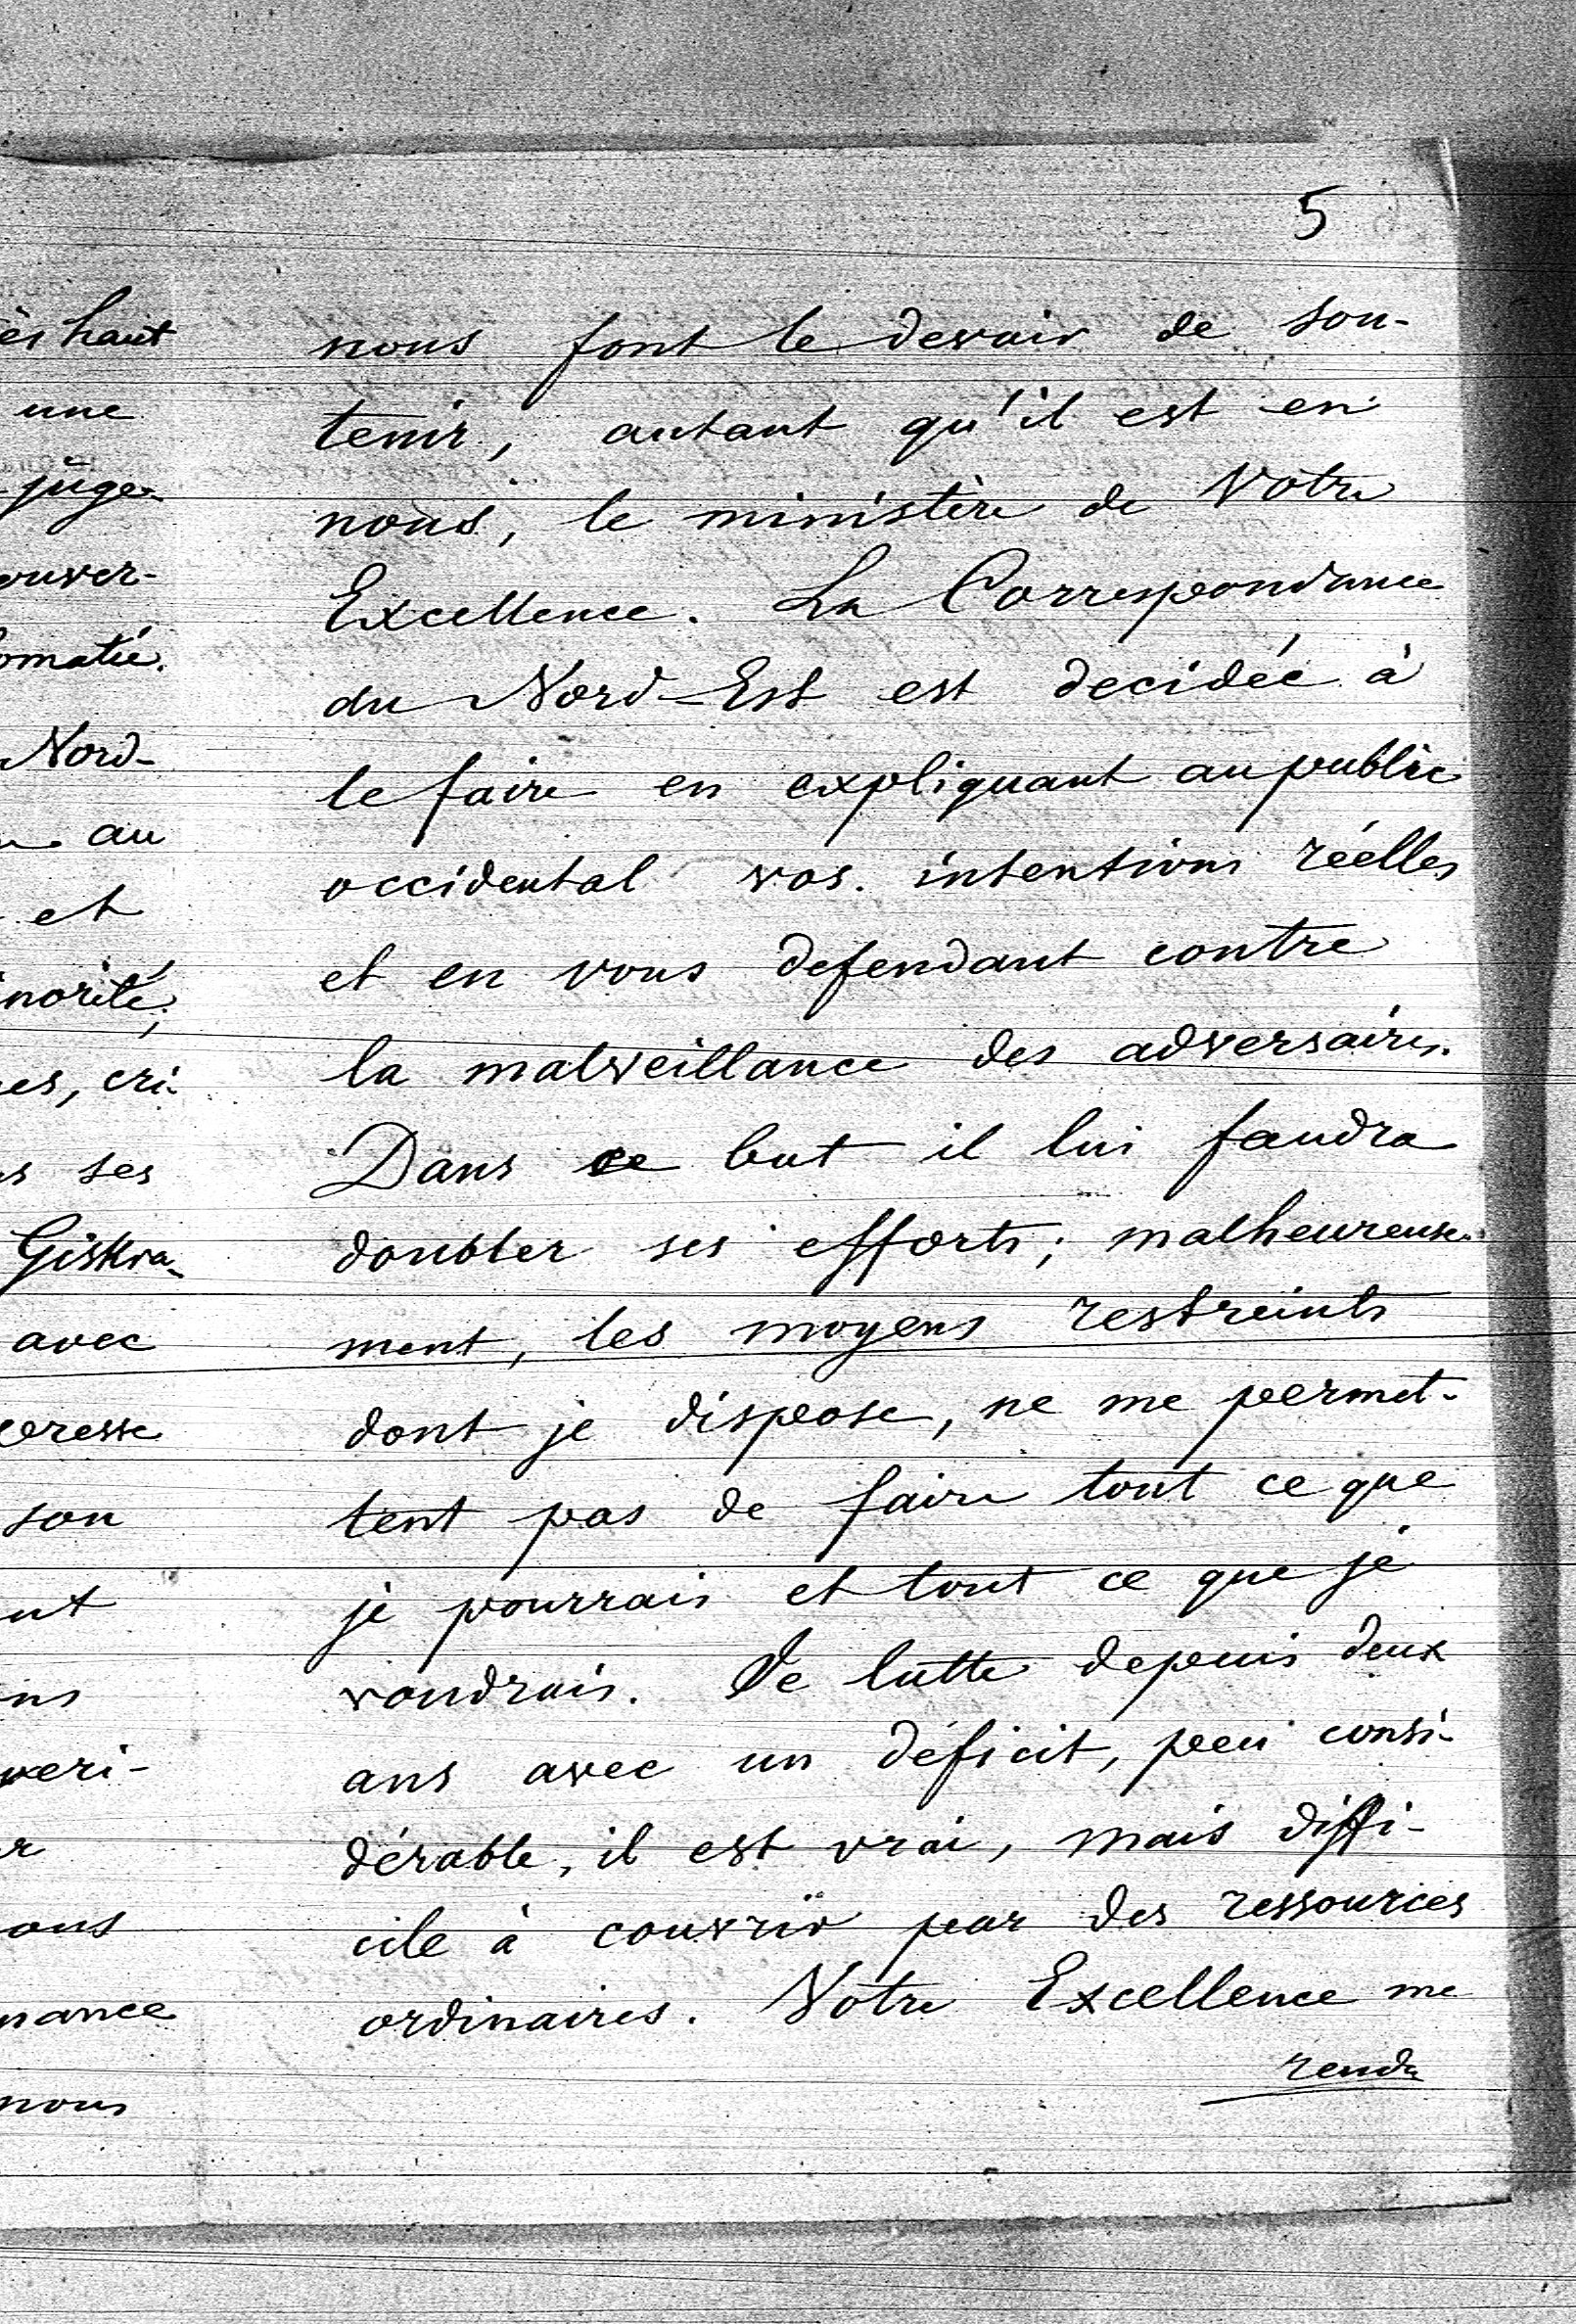 5
ès haut
une
juge-
ouver-
omatie.
Nord-
au
et
inorité,
es, cri-
s ses
Giskra-
avec
eresse
son
ut
ns
veri-
r
ous
nance
nous
nous font le devoir de sou-
tenir, autant qu'il est en
nous, le ministère de Votre
Excellence. La Correspondance
du Nord-Est est decidée à
le faire en expliquant au public
occidental vos intentions réelles
et en vous defendant contre
la malveillance des adversaires.
Dans ce but il lui faudra
doubler ses efforts; malheureuse-
ment, les moyens restreints
dont je dispose, ne me permet-
tent pas de faire tout ce que
je pourrais et tout ce que je
voudrais. Je lutte depuis deux
ans avec un déficit, peu consi-
dérable, il est vrai, mais diffi-
cile à couvrir par des ressources
ordinaires. Votre Excellence me
rendu